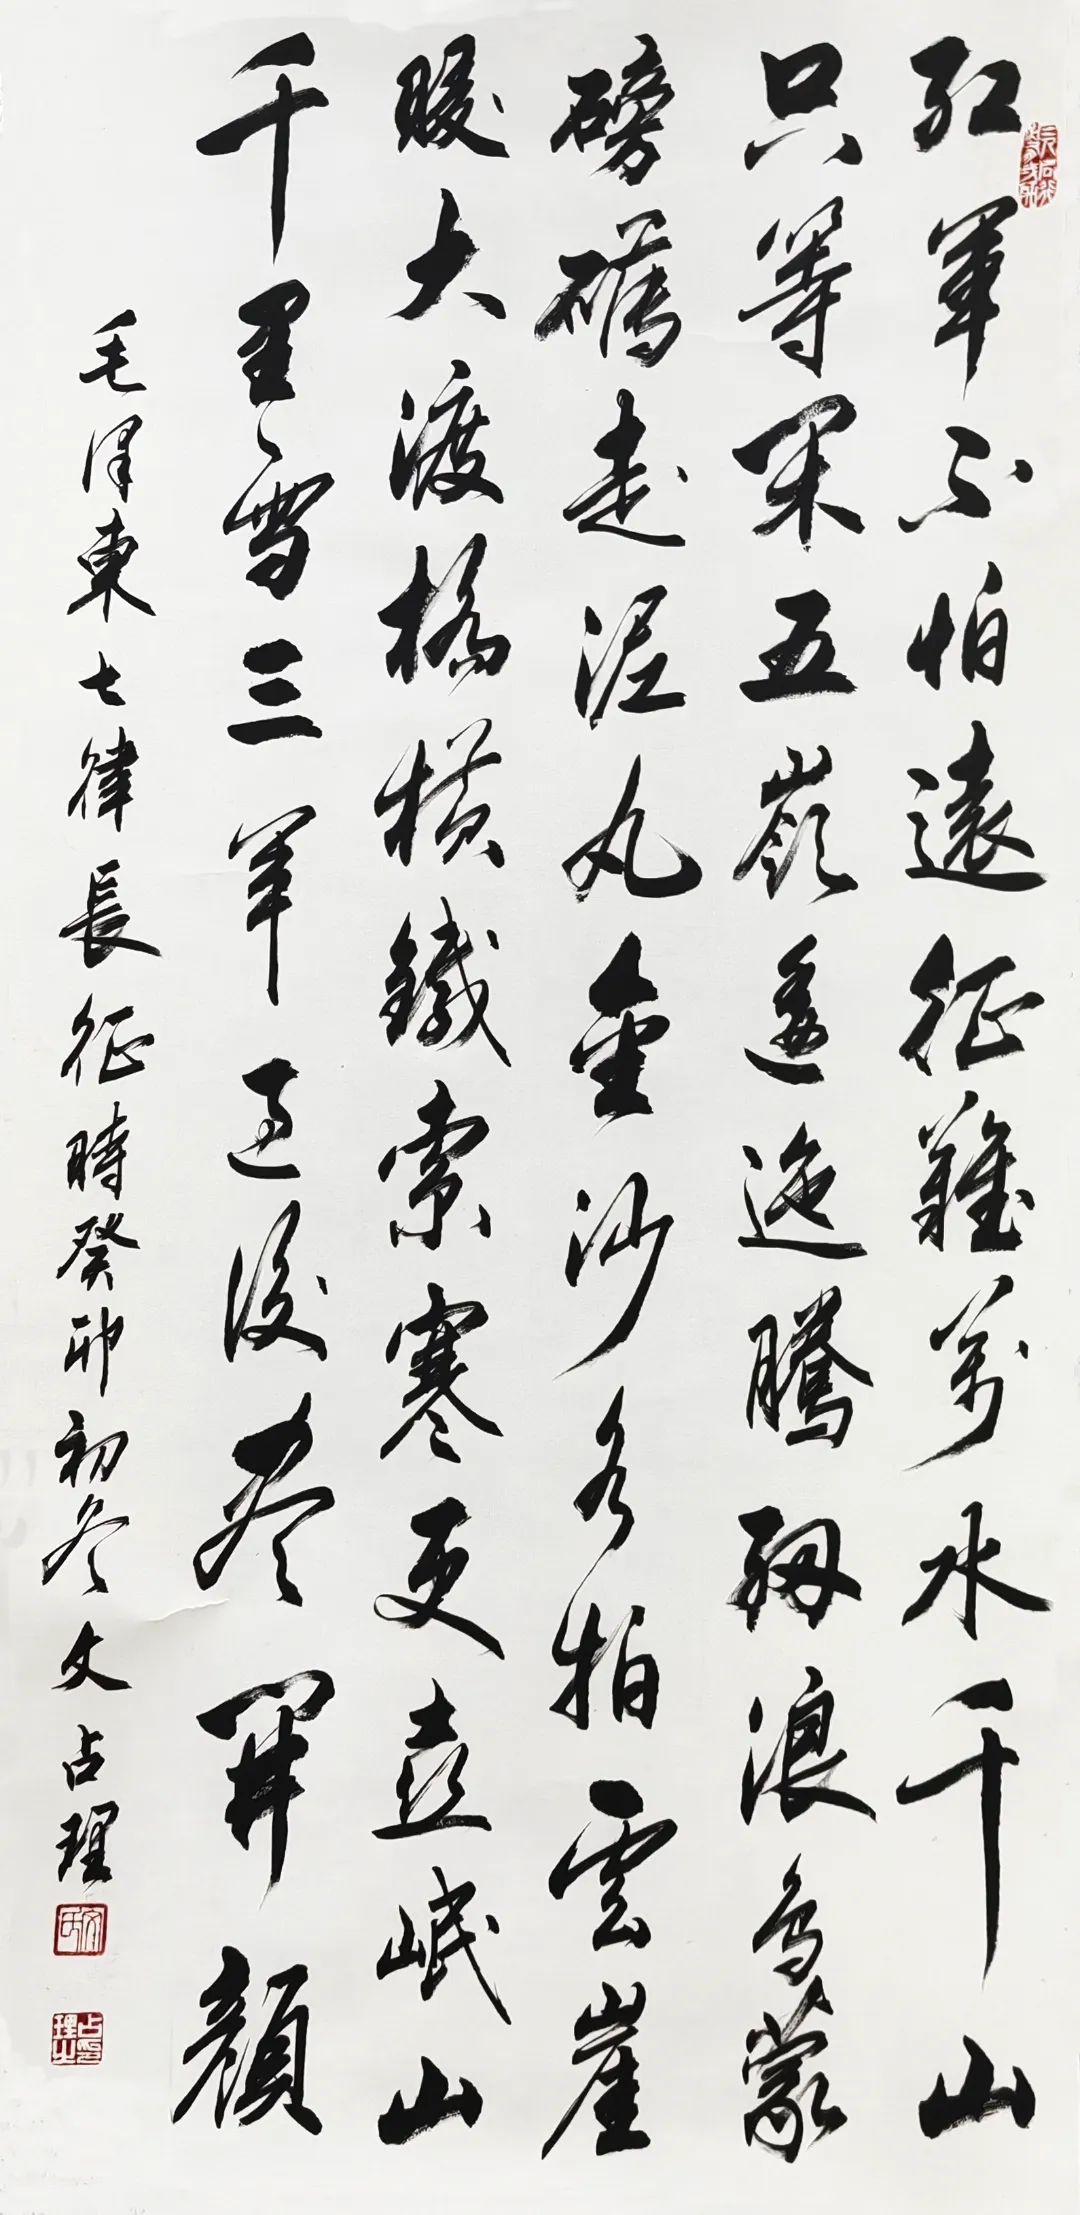 紅軍不怕遠征難萬水千山
只等閑五嶺逶迤騰細浪烏蒙
磅礴走泥丸金沙水拍雲崖
暖大渡橋橫鐵索寒更喜岷山
千里雪三軍過後尽開顏
毛澤東七律長征時癸卯初冬文占理
占理之印